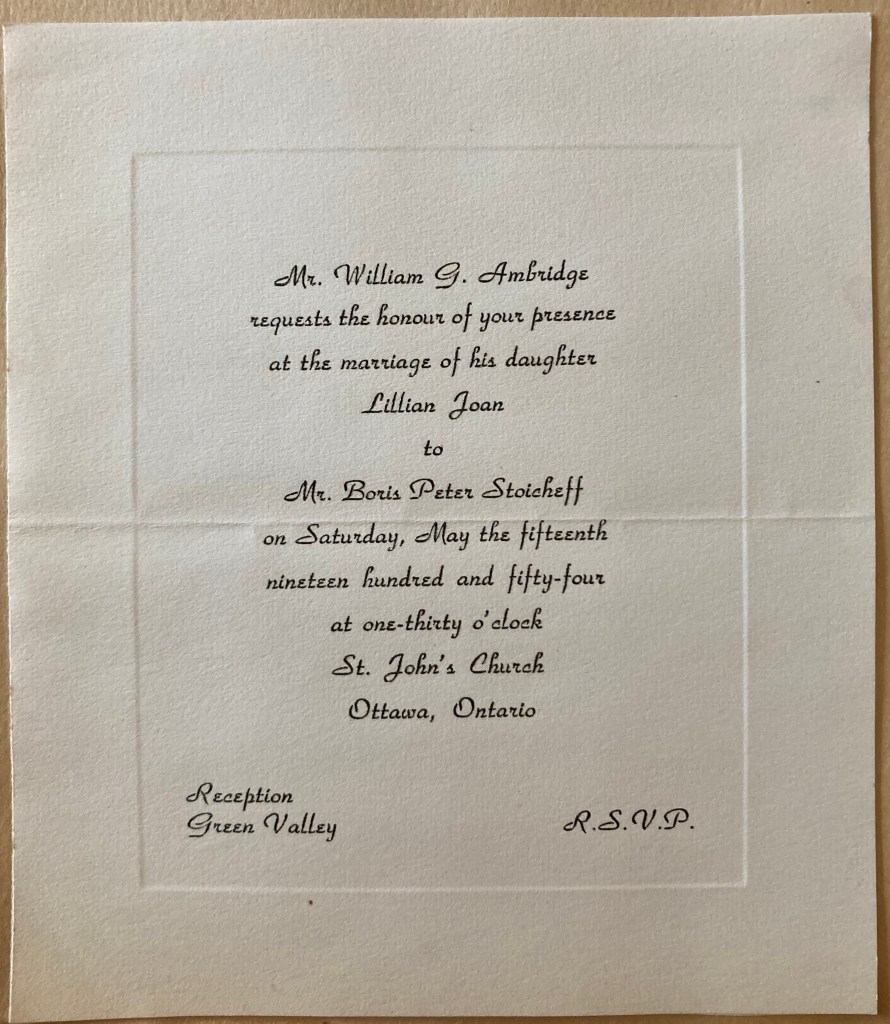 Mr. William G. Ambridge
requests the honour of your presence
at the marriage of his daughter
Lillian Joan
to
Mr. Boris Peter Stoicheff
on Saturday, May the fifteenth
nineteen hundred and fifty-four
at one-thirty o'clock
St. John's Church
Ottawa, Ontario
Reception
Green Valley
R.S.V.P.